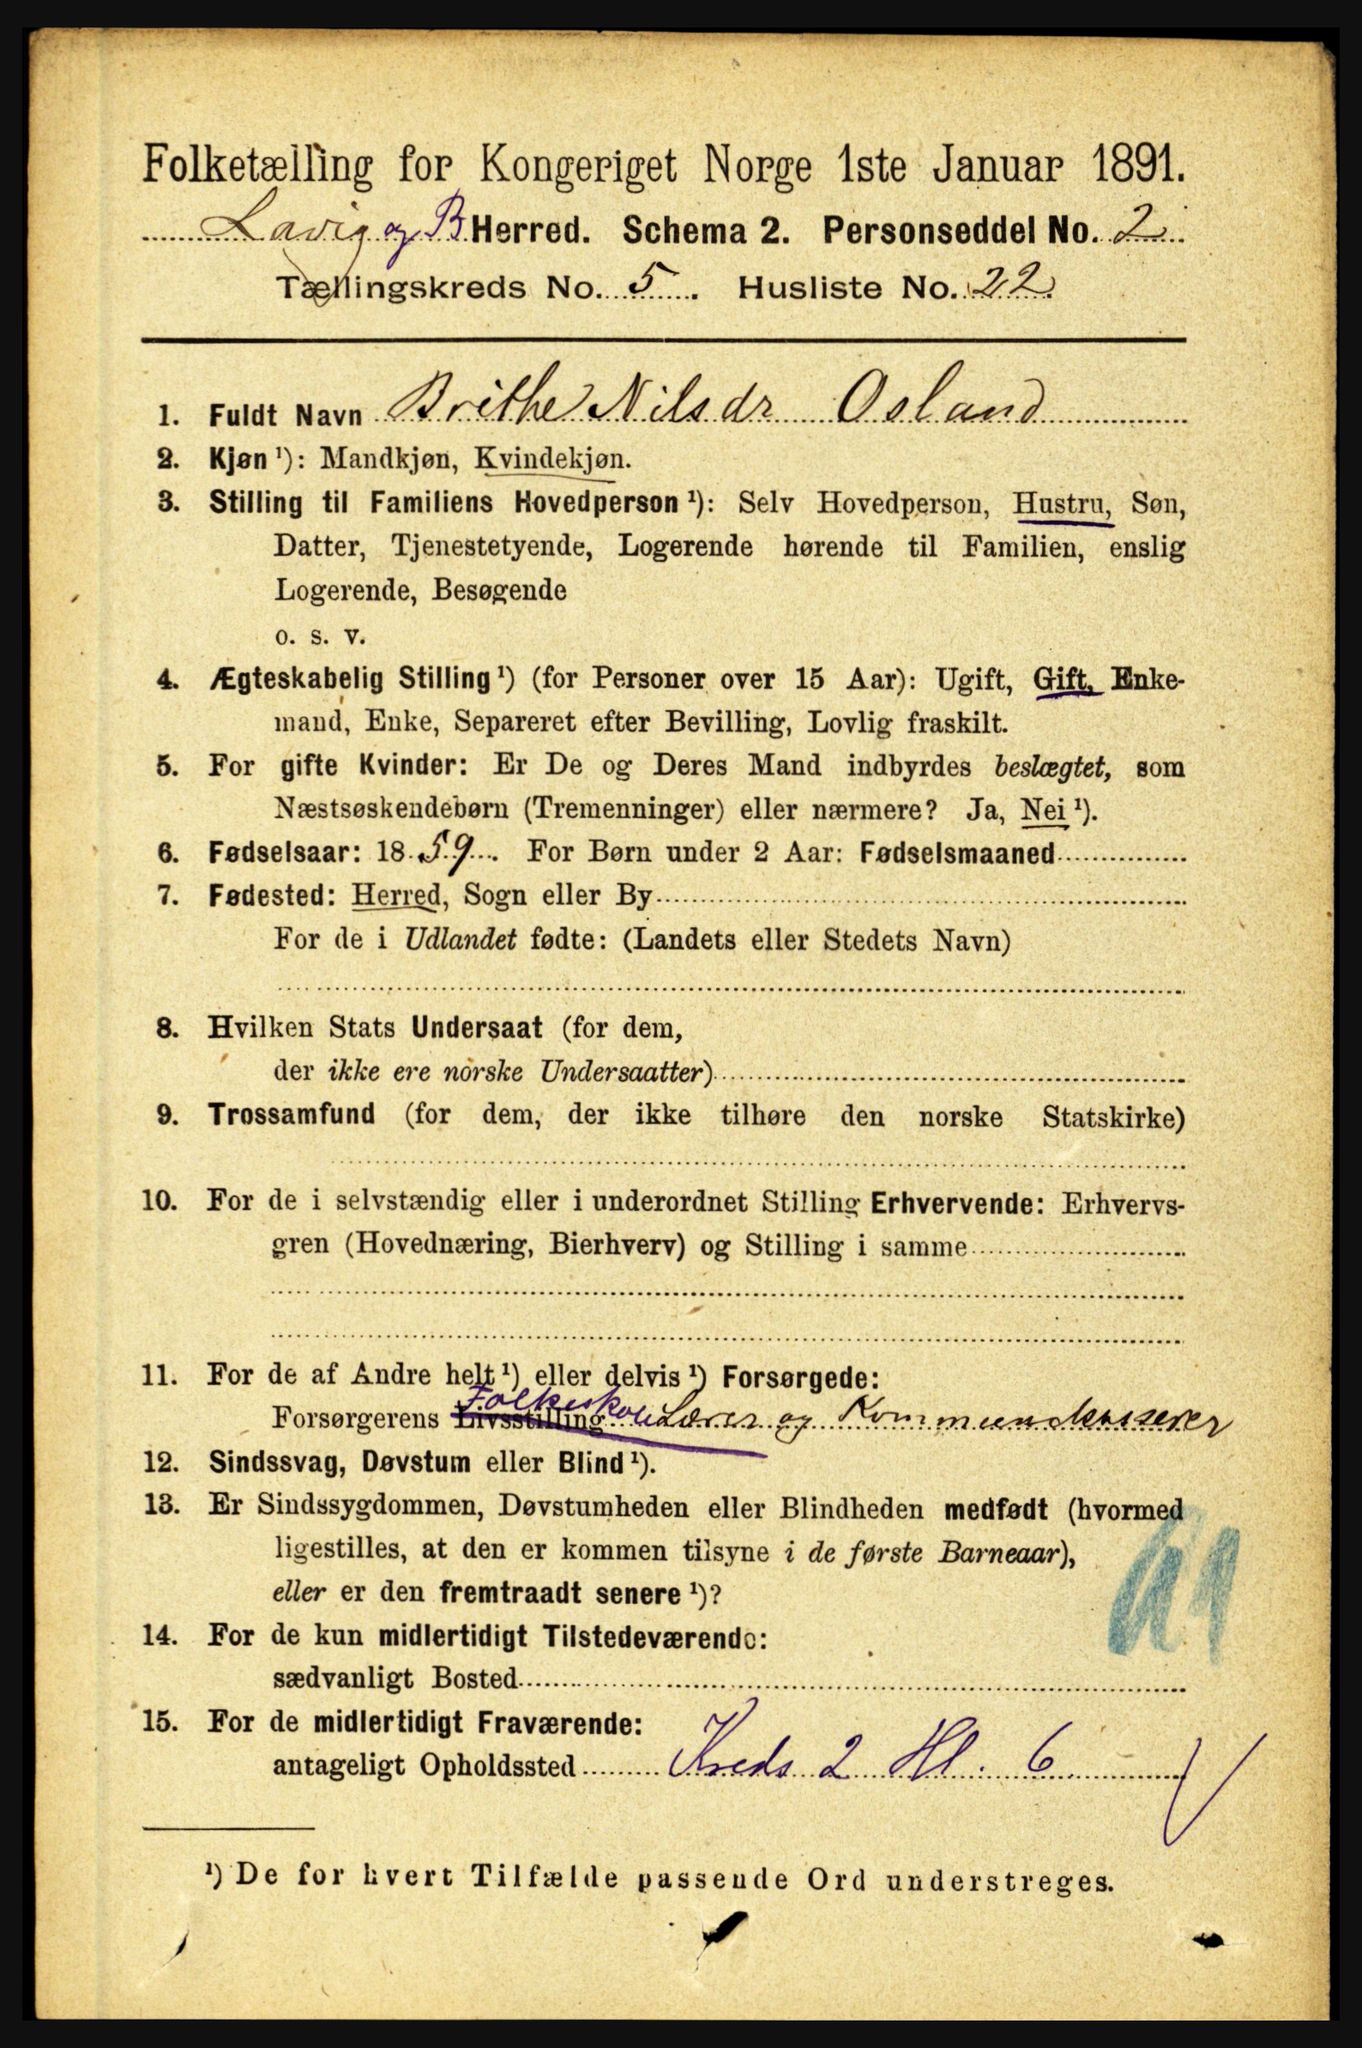 Folketælling for Kongeriget Norge 1ste Januar 1891.
Lavig og B Herred. Schema 2. Personseddel No. 2
Tællingskreds No. 5. Husliste No. 22
1. Fuldt Navn Brithe Nilsdr Osland
2. Kjøn ¹): Mandkjøn, Kvindekjøn.
3. Stilling til Familiens Hovedperson ¹): Selv Hovedperson, Hustru, Søn,
Datter, Tjenestetyende, Logerende hørende til Familien, enslig
Logerende, Besøgende
o. s. v.
4. Ægteskabelig Stilling ¹) (for Personer over 15 Aar): Ugift, Gift, Enke-
mand, Enke, Separeret efter Bevilling, Lovlig fraskilt.
5. For gifte Kvinder: Er De og Deres Mand indbyrdes beslægtet, som
Næstsøskendebørn (Tremenninger) eller nærmere? Ja, Nei ¹).
6. Fødselsaar: 1859. For Børn under 2 Aar: Fødselsmaaned
7. Fødested: Herred, Sogn eller By
For de i Udlandet fødte: (Landets eller Stedets Navn)
8. Hvilken Stats Undersaat (for dem,
der ikke ere norske Undersaatter)
9. Trossamfund (for dem, der ikke tilhøre den norske Statskirke)
10. For de i selvstændig eller i underordnet Stilling Erhvervende: Erhvervs-
gren (Hovednæring, Bierhverv) og Stilling i samme
11. For de af Andre helt ¹) eller delvis ¹) Forsørgede:
Forsørgerens Livsstilling Folkeskole Lærer og Kommunekasserer
12. Sindssvag, Døvstum eller Blind ¹).
13. Er Sindssygdommen, Døvstumheden eller Blindheden medfødt (hvormed
ligestilles, at den er kommen tilsyne i de første Barneaar),
eller er den fremtraadt senere ¹)?
14. For de kun midlertidigt Tilstedeværende:
sædvanligt Bosted
15. For de midlertidigt Fraværende:
antageligt Opholdssted Kreds 2 Hl. 6
¹) De for hvert Tilfælde passende Ord understreges.